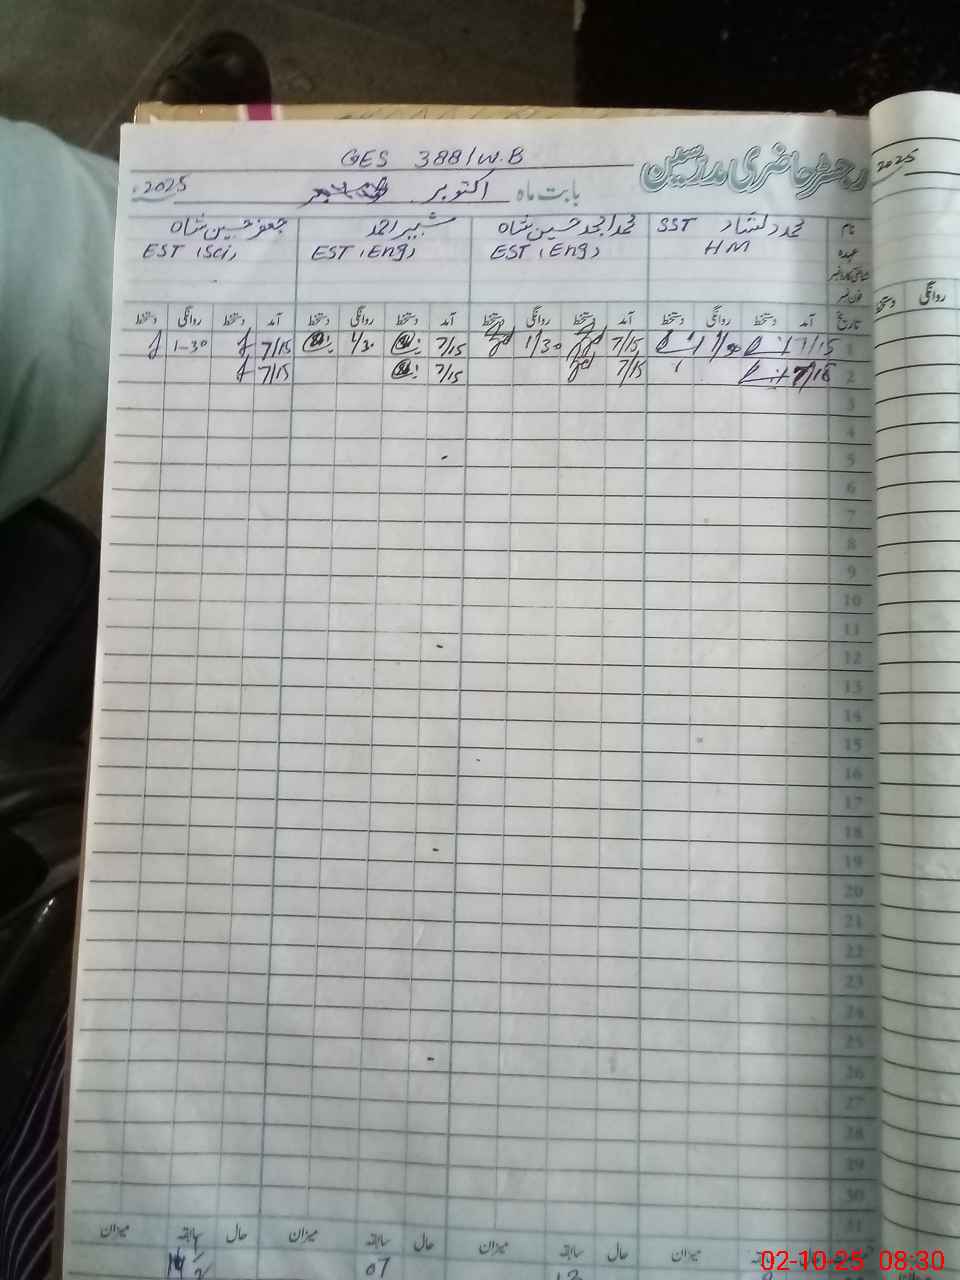 GES 388/W.B
رجسٹر حاضری مدرسین
2025
بابت ماہ اکتوبر 2025
نام محمد دلشاد SST محمد امجد حسین شاہ شبیر احمد جعفر حسین شاہ
عہدہ HM EST (Eng) EST (Eng) EST (Sci)
شناختی کارڈ نمبر
فون نمبر
تاریخ آمد دستخط روانگی دستخط آمد دستخط روانگی دستخط آمد دستخط روانگی دستخط آمد دستخط روانگی دستخط
روانگی دستخط
1 7/15 1/30 7/15 1/30 7/15 1/30 7/15 1-30
2 7/15 7/15 7/15 7/15
3
4
5
6
7
8
9
10
11
12
13
14
15
16
17
18
19
20
21
22
23
24
25
26
27
28
29
30
31
میزان سابقہ حال میزان سابقہ حال میزان سابقہ حال میزان سابقہ
07
02-10-25 08:30